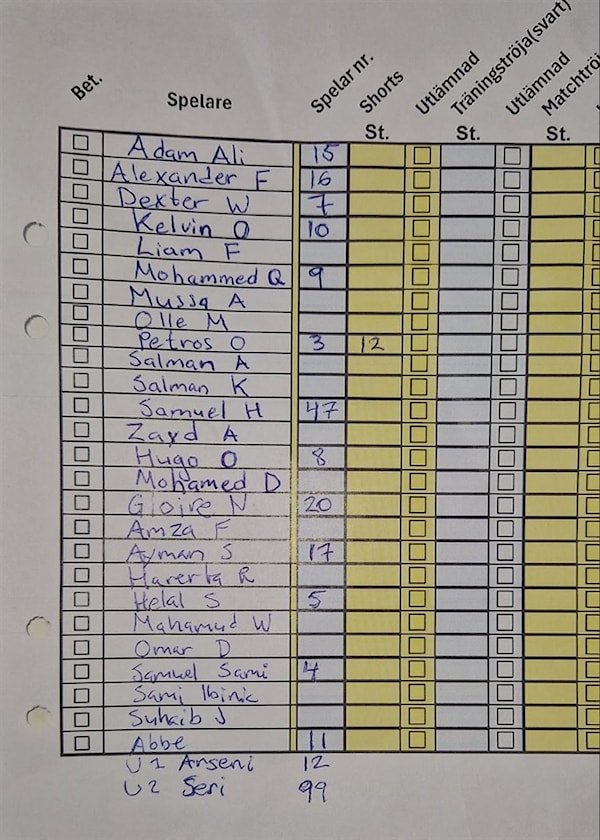 Bet. Spelare Spelar nr. Shorts Utlämnad Träningströja(svart) Utlämnad Matchtröj
St. St. St.
Adam Ali 15
Alexander F 16
Dexter W 7
Kelvin O 10
Liam F
Mohammed Q 9
Mussa A
Olle M
Petros O 3 12
Salman A
Salman K
Samuel H 47
Zayd A
Hugo O 8
Mohamed D
Gloire N 20
Amza F
Ayman S 17
Harerta R
Helal S 5
Mahamud W
Omar D
Samuel Sami 4
Sami
Suhaib J
Abbe 11
U1 Arseni 12
U2 Seri 99